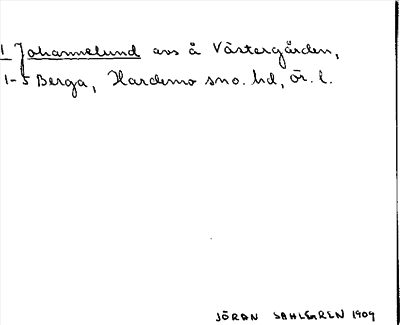 1 Johannelund avs å Västergården,
1-5 Berga, Hardemo sno. hd, ör. l.
JÖRAN SAHLGREN 1909